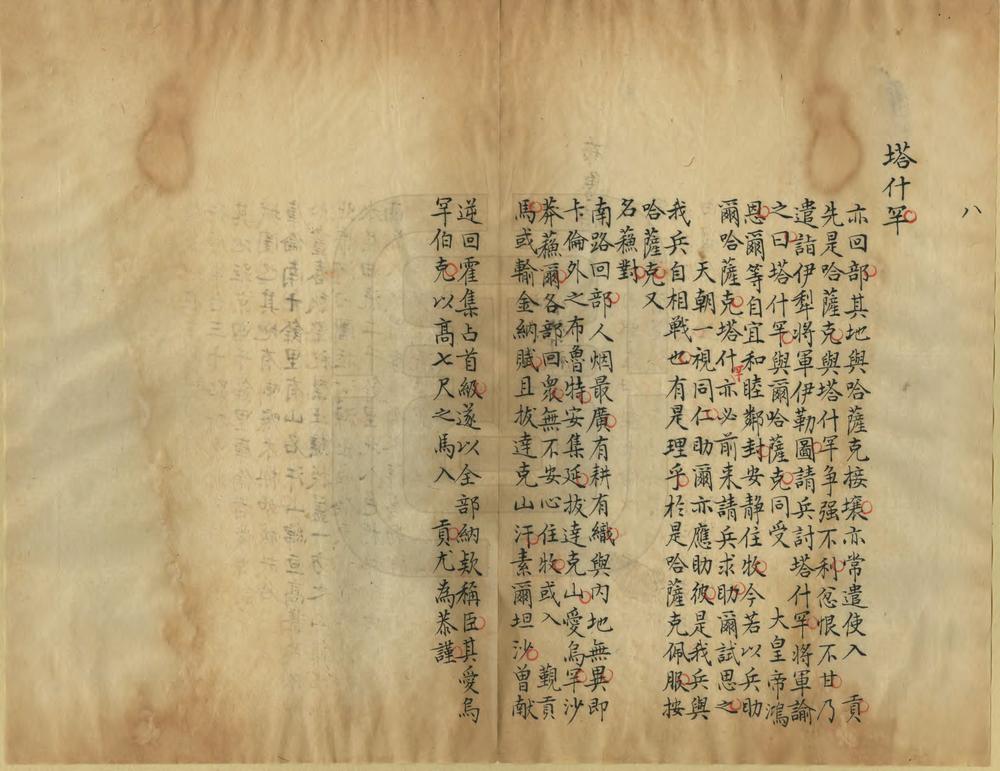 八
塔什罕
亦回部其地與哈薩克接壤亦常遣使入　貢
先是哈薩克與塔什罕争强不利忿恨不甘乃
遣詣伊犁將軍伊勒圖請兵討塔什罕將軍諭
之曰塔什罕與爾哈薩克同受　大皇帝鴻
恩爾等自宜和睦鄰封安静住牧今若以兵助
爾哈薩克塔什罕亦必前来請兵求助爾試思之
天朝一視同仁助爾亦應助彼是我兵與
我兵自相戰也有是理乎於是哈薩克佩服按
哈薩克又
名蘓對
南路回部人烟最廣有耕有織與内地無異即
卡倫外之布魯特安集延拔達克山愛烏罕沙
莽蘓爾各部回衆無不安心住牧或入　覲貢
馬或輸金納賦且拔達克山汗素爾坦沙曾献
逆回霍集占首級遂以全部納欵稱臣其愛烏
罕伯克以髙七尺之馬入　貢尤為恭謹